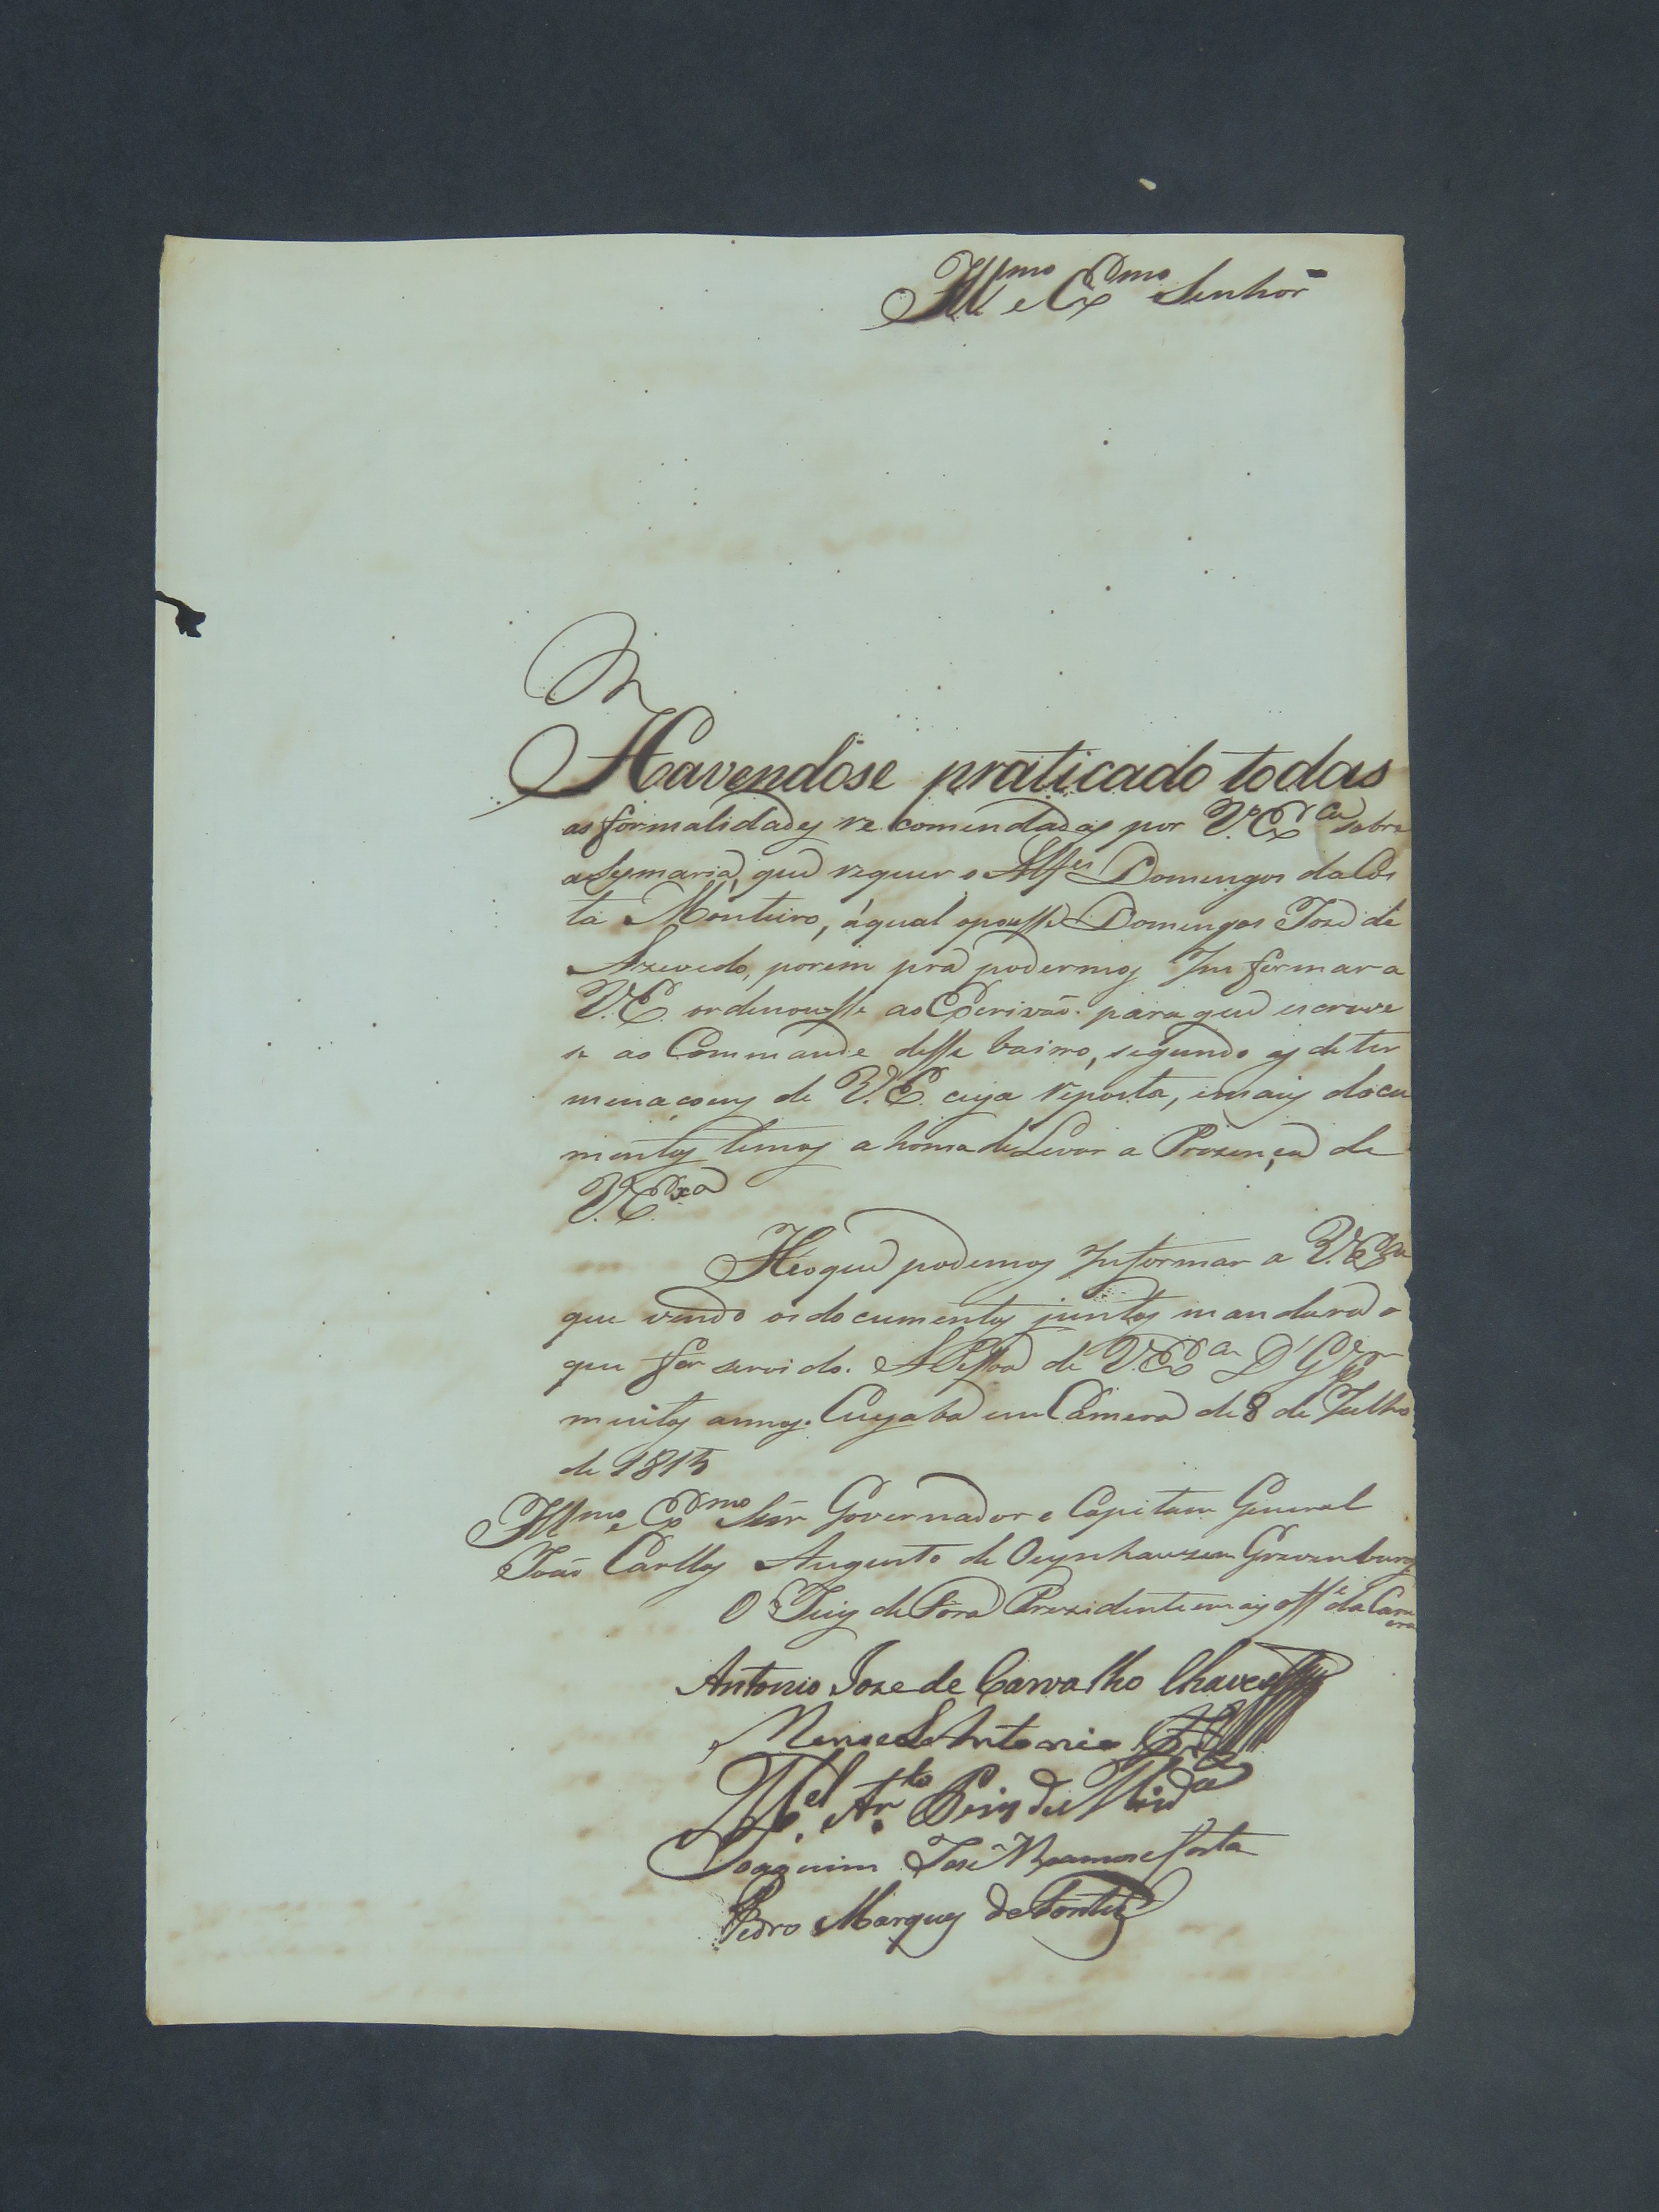 Illmo e Exmo Senhor
Havendose praticado todas
as formalidades recomendadas por V. Exca sobre
a Sysmaria, que requer o Alfes Domingos da Cos
ta Monteiro, áqual oposse Domingos Jozé de
Azevedo, porem pra podermos Informar a
V. E. ordenousse ao Escrivaõ para que escreve
se ao Commande desse bairro, segundo as deter
minaçoens de V. E. cuja reposta, emais docu
mentos temos a honra de Levar a Prezença de
V. Exa
He o que podemos Informar a V. Exa
que vendo os documentos juntos mandará o
que for servido. A Pessoa de V. Exa D. Ge
muitos annos. Cuyabá em Camera de 8 de Julho
de 1815
Illmo e Exmo Senr Governador e Capitam General
Joaõ Carllos Augusto de Oeynhauzen Grevenburg
O Juiz de Fora Prezidente emais offes da Cam
era
Antonio Joze de Carvalho Chaves
Manoel Antonio
Mel Anto Pires de Mirda
Joaquim José Ramos e Costa
Pedro Marques de Fontes